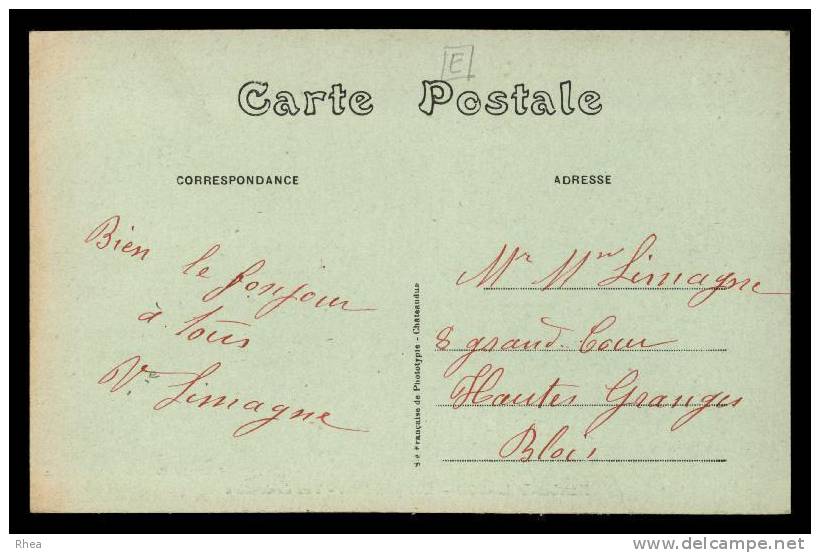 E
Carte Postale
CORRESPONDANCE
ADRESSE
Bien
le bonjour
à tous
Vve Limagne
Sié Française de Phototypie - Châteaudun
Mr Mme Limagne
8 grand. Cour
Hautes Granges
Blois
Rhea
www.delcampe.net